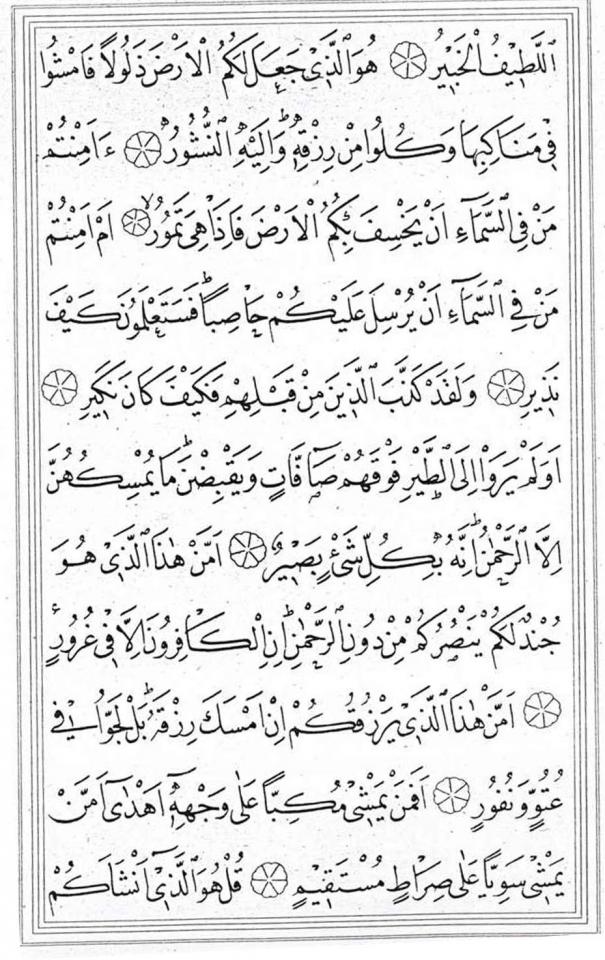 اَللَّطٖيفُ الْخَبٖيرُ ۞ هُوَ الَّذٖى جَعَلَ لَكُمُ الْاَرْضَ ذَلُولًا فَامْشُوا
فٖى مَنَاكِبِهَا وَكُلُوا مِنْ رِزْقِهٖؕ وَاِلَيْهِ النُّشُورُ ۞ ءَاَمِنْتُمْ
مَنْ فِى السَّمَٓاءِ اَنْ يَخْسِفَ بِكُمُ الْاَرْضَ فَاِذَا هِىَ تَمُورُۙ ۞ اَمْ اَمِنْتُمْ
مَنْ فِى السَّمَٓاءِ اَنْ يُرْسِلَ عَلَيْكُمْ حَاصِبًاؕ فَسَتَعْلَمُونَ كَيْفَ
نَذٖيرِ ۞ وَلَقَدْ كَذَّبَ الَّذٖينَ مِنْ قَبْلِهِمْ فَكَيْفَ كَانَ نَكٖيرِ ۞
اَوَلَمْ يَرَوْا اِلَى الطَّيْرِ فَوْقَهُمْ صَٓافَّاتٍ وَيَقْبِضْنَؕ مَا يُمْسِكُهُنَّ
اِلَّا الرَّحْمٰنُؕ اِنَّهُ بِكُلِّ شَىْءٍ بَصٖيرٌ ۞ اَمَّنْ هٰذَا الَّذٖى هُوَ
جُنْدٌ لَكُمْ يَنْصُرُكُمْ مِنْ دُونِ الرَّحْمٰنِؕ اِنِ الْكَافِرُونَ اِلَّا فٖى غُرُورٍ
۞ اَمَّنْ هٰذَا الَّذٖى يَرْزُقُكُمْ اِنْ اَمْسَكَ رِزْقَهُؕ بَلْ لَجُّوا فٖى
عُتُوٍّ وَنُفُورٍ ۞ اَفَمَنْ يَمْشٖى مُكِبًّا عَلٰى وَجْهِهٖٓ اَهْدٰٓى اَمَّنْ
يَمْشٖى سَوِيًّا عَلٰى صِرَاطٍ مُسْتَقٖيمٍ ۞ قُلْ هُوَ الَّذٖٓى اَنْشَاَكُمْ